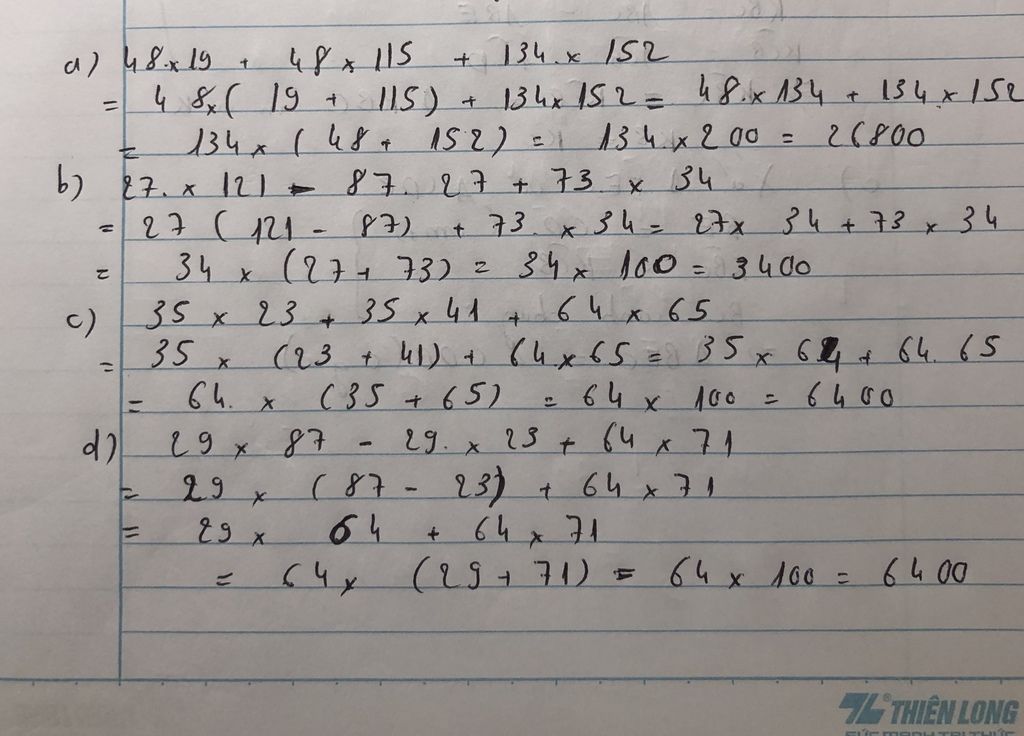 a) 48.x19 + 48 x 115 + 134.x 152
= 48x( 19 + 115) + 134x152 = 48.x134 + 134.x152
= 134x ( 48 + 152) = 134.x200 = 26800
b) 27. x 121 - 87. 27 + 73 x 34
= 27 ( 121 - 87) + 73. x 34 = 27x 34 + 73 x 34
= 34 x (27+ 73) = 34 x 100 = 3400
c) 35 x 23 + 35 x 41 + 64 x 65
= 35 x (23 + 41) + 64x65 = 35 x 64 + 64. 65
= 64. x (35 + 65) = 64 x 100 = 6400
d) 29 x 87 - 29. x 23 + 64 x 71
= 29 x ( 87 - 23) + 64 x 71
= 29 x 64 + 64 x 71
= 64x (29+ 71) = 64 x 100 = 6400
TL® THIÊN LONG
SỨC MẠNH TRI THỨC